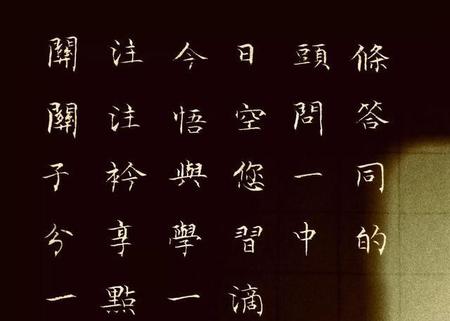 關注今日頭條
關注悟空問答
子衿與您一同
分享學習中的
一點一滴